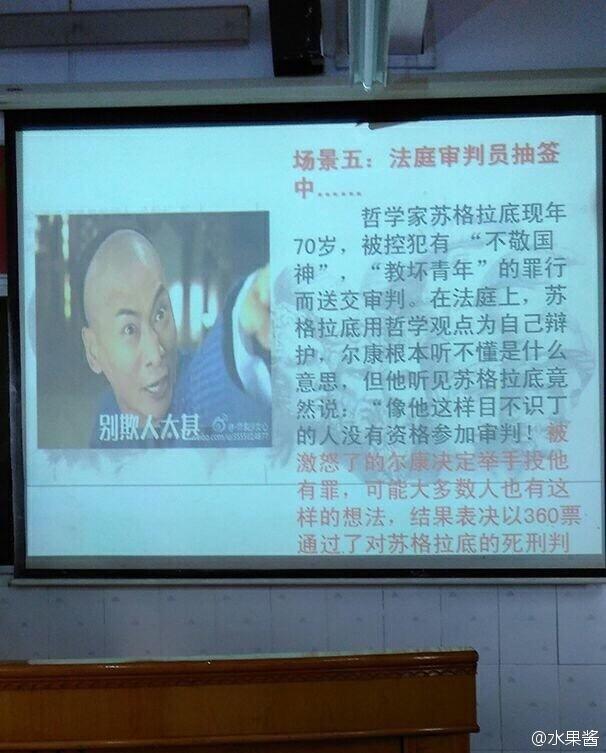 场景五：法庭审判员抽签
中……
哲学家苏格拉底现年
70岁，被控犯有 “不敬国
神”，“教坏青年”的罪行
而送交审判。在法庭上，苏
格拉底用哲学观点为自己辩
护，尔康根本听不懂是什么
意思，但他听见苏格拉底竟
然说：“像他这样目不识丁
的人没有资格参加审判！被
激怒了的尔康决定举手投他
有罪，可能大多数人也有这
样的想法，结果表决以360票
通过了对苏格拉底的死刑判
别欺人太甚
@水果酱